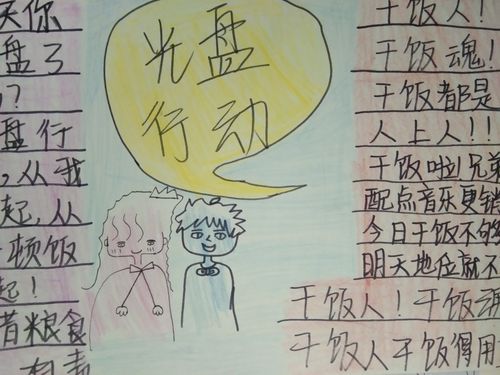 天你
盘了
?
盘行
,从我
起,从
顿饭
起!
惜粮食
有责
光盘
行动
干饭人!
干饭魂!
干饭都是
人上人!!
干饭啦!兄弟
配点音乐更
今日干饭不
明天地位就不
干饭人!干饭魂
干饭人干饭得用